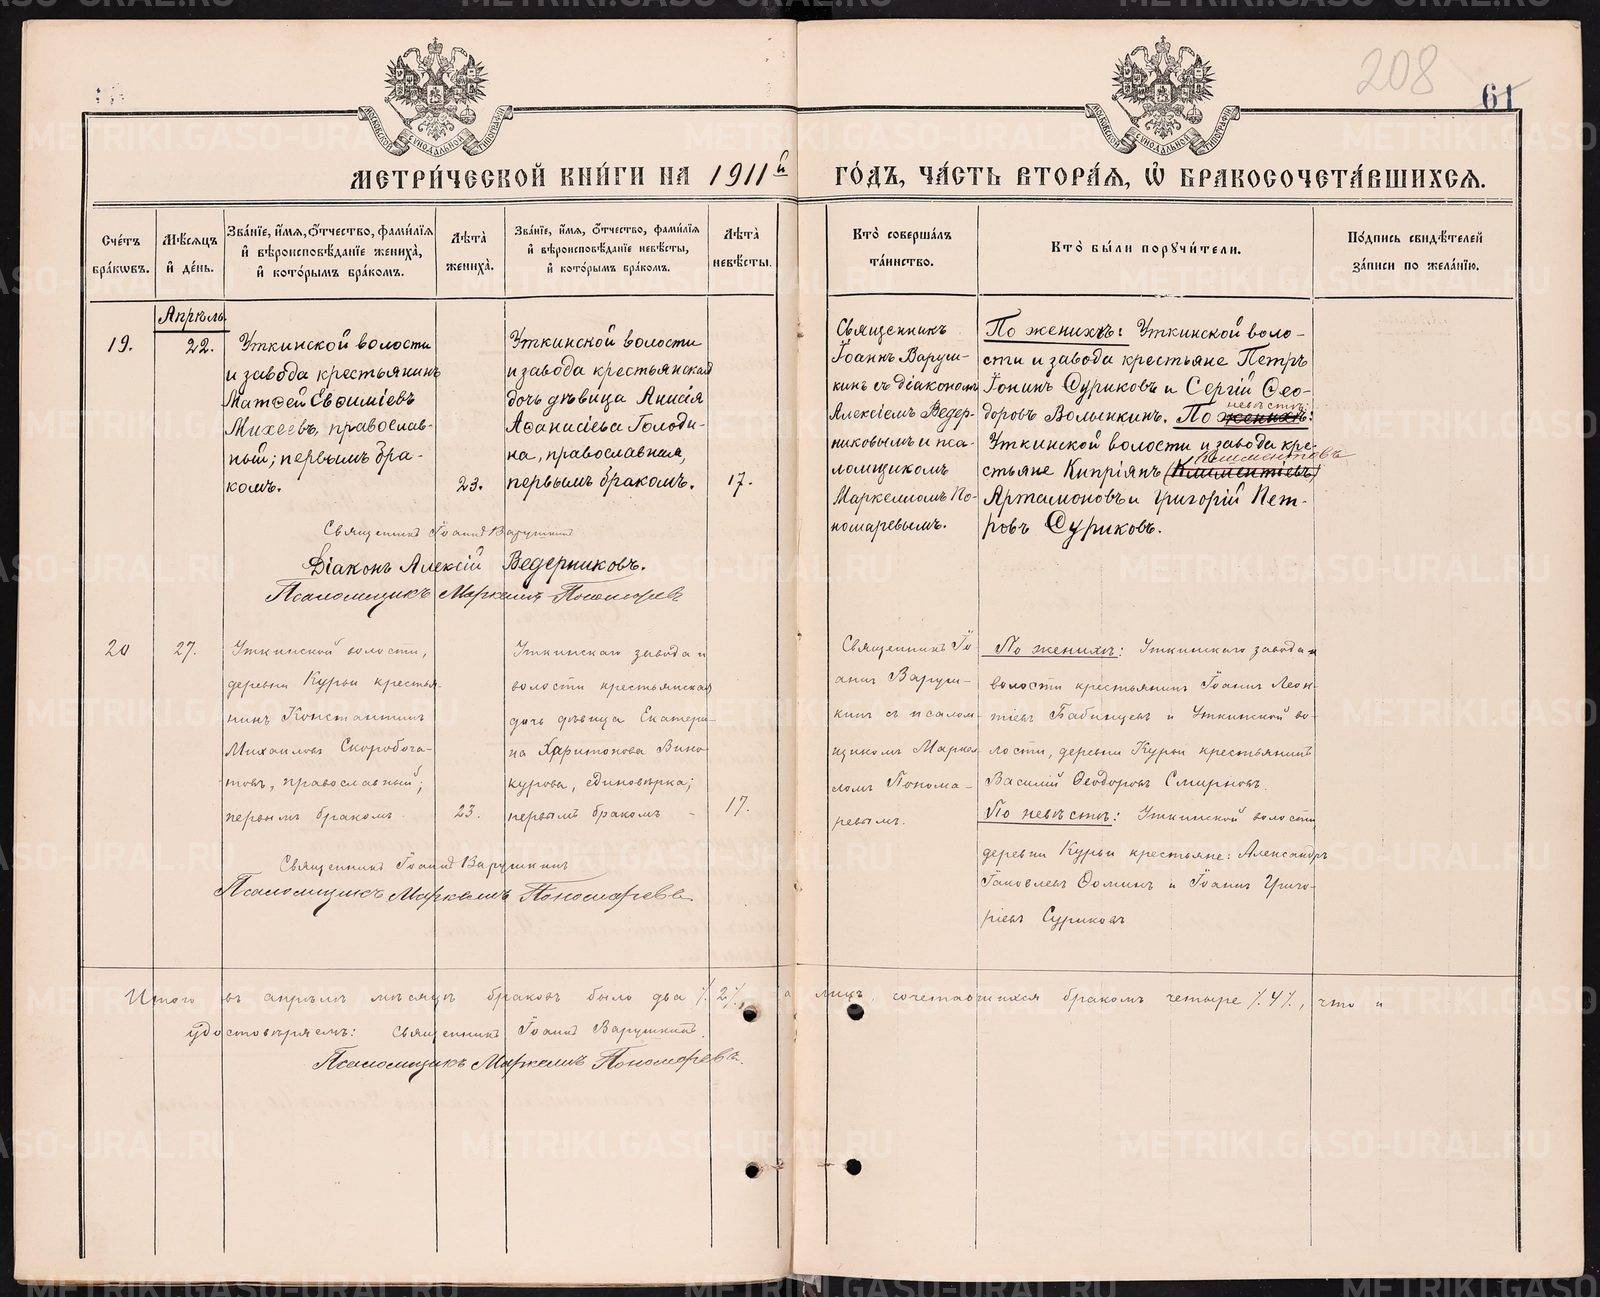 208
61
МЕТРИ́ЧЕСКОЙ КНИ́ГИ НА 1911й ГО́ДЪ, ЧА́СТЬ ВТОРА́Я, Ѡ БРАКОСОЧЕТА́ВШИХСЯ.
Сче́тъ бра́кѡвъ.
Мѣ́сяцъ и де́нь.
Зва́нїе, и́мя, ѻ́тчество, фами́лїя и вѣроисповѣ́данїе жениха̀, и кото́рымъ бра́комъ.
Лѣ́та жениха̀.
Зва́нїе, и́мя, ѻ́тчество, фами́лїя и вѣроисповѣ́данїе невѣ́сты, и кото́рымъ бра́комъ.
Лѣ́та невѣ́сты.
Кто̀ соверша́лъ та́инство.
Кто̀ бы́ли порꙋчи́тели.
По́дпись свидѣ́телей за́писи по жела́нїю.
Апрѣль
19.
22.
Уткинской волости
и завода крестьянинъ
Матѳей Евѳиміевъ
Михеевъ, православ-
ный; первымъ бра-
комъ.
23.
Уткинской волости
и завода крестьянская
дочь дѣвица Анисія
Аѳанасіева Голоди-
на, православная,
первымъ бракомъ.
17.
Священникъ
Іоаннъ Варуш-
кинъ съ діакономъ
Алексіемъ Ведер-
никовымъ и пса-
ломщикомъ
Маркелломъ По-
номаревымъ.
По женихѣ: Уткинской воло-
сти и завода крестьяне Петръ
Іонинъ Суриковъ и Сергій Ѳео-
доровъ Волынкинъ. По женихѣ:
невѣстѣ
Уткинской волости и завода кре-
стьяне Кипріянъ (Климентіевъ)
Климентовъ
Артамоновъ и Григорій Пет-
ровъ Суриковъ.
Священникъ Іоаннъ Варушкинъ
Діаконъ Алексій Ведерниковъ.
Псаломщикъ Маркеллъ Пономаревъ
20
27.
Уткинской волости,
деревни Курьи крестья-
нинъ Константинъ
Михаиловъ Скоробога-
товъ, православный;
первымъ бракомъ
23.
Уткинскаго завода и
волости крестьянская
дочь дѣвица Екатери-
на Харитонова Вино-
курова, единовѣрка;
первымъ бракомъ -
17.
Священникъ Іо-
аннъ Варуш-
кинъ съ псалом-
щикомъ Маркел-
ломъ Понома-
ревымъ.
По женихѣ: Уткинскаго завода и
волости крестьянинъ Іоаннъ Леон-
тіевъ Бабинцевъ и Уткинской во-
лости, деревни Курьи крестьянинъ
Василій Ѳеодоровъ Смирновъ.
По невѣстѣ: Уткинской волости
деревни Курьи крестьяне: Александръ
Іаковлевъ Ѳоминъ и Іоаннъ Григо-
ріевъ Суриковъ
Священникъ Іоаннъ Варушкинъ
Псаломщикъ Маркеллъ Пономаревъ
Итого въ апрѣлѣ мѣсяцѣ браковъ было два /.2/., а лицъ, сочетавшихся бракомъ четыре /.4/., что и
удостовѣряемъ: Священникъ Іоаннъ Варушкинъ.
Псаломщикъ Маркеллъ Пономаревъ.
METRIKI.GASO-URAL.RU